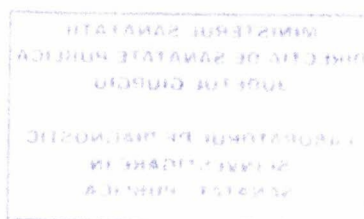 MINISTERUL SANATATII
DIRECTIA DE SANATATE PUBLICA
JUDETUL GIURGIU
LABORATORUL DE DIAGNOSTIC
SI INVESTIGARE IN
SANATATE PUBLICA